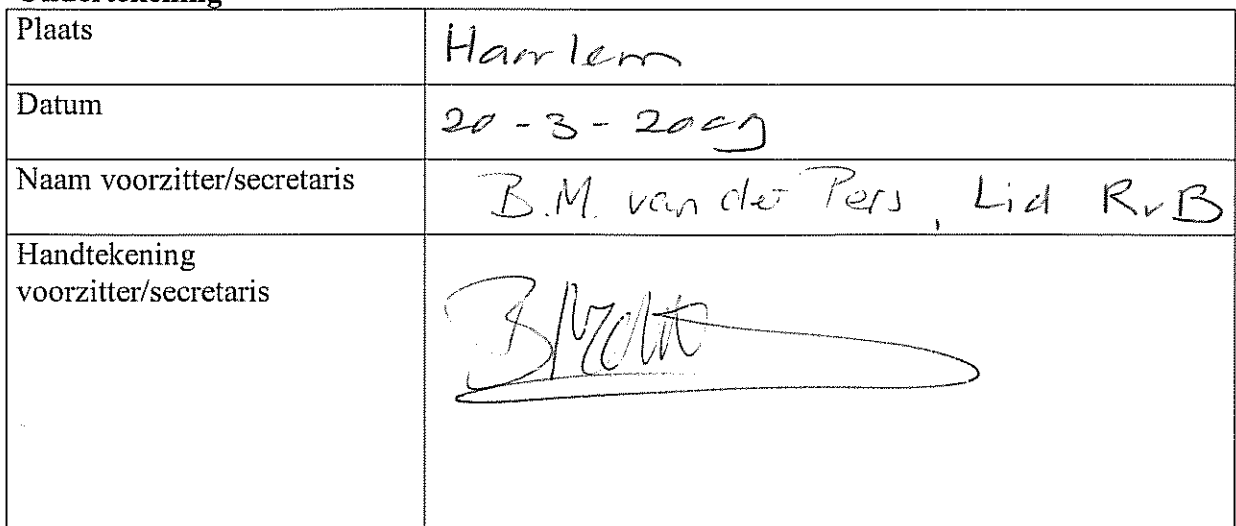 Ondertekening
Plaats
Haarlem
Datum
20-3-2009
Naam voorzitter/secretaris
B.M. van der Pers, Lid RvB
Handtekening
voorzitter/secretaris